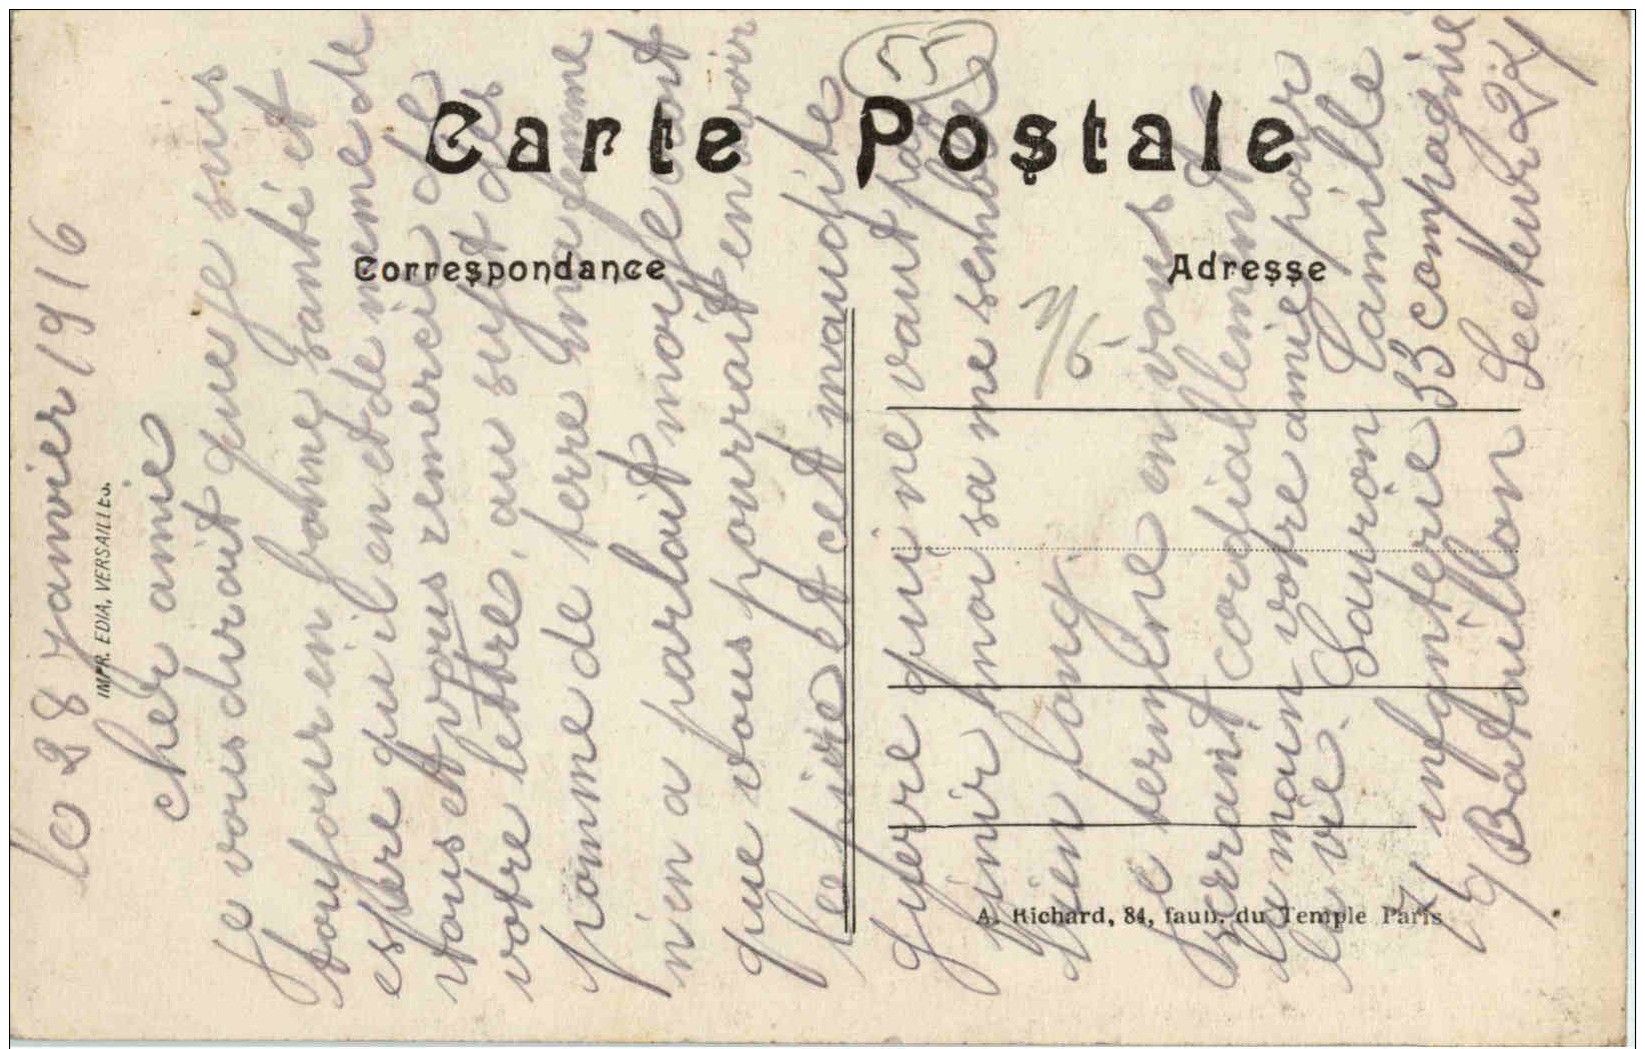 Carte Postale
Correspondance
Adresse
IMPR. EDIA, VERSAILLES.
A. Richard, 84, faub. du Temple Paris
55
7/6
le 28 janvier 1916
cher amie
Je vous dirait que je suis
toujour en bonne santé et
espere qu il en et de meme de
vous et vous remercie de
votre lettre, au sujet des
pomme de terre ma femme
nen a parlait moi je cont
que vous pourrait en avoir
le livre et cet maudite
guere qui ne vaut pas
finir moi sa me semble
bien long.
Je termine en vous
serrant cordiallement
la main votre amie pour
la vie. Lauron Camille
71 infanterie 33 compagnie
4 Bataillon Secteur 24